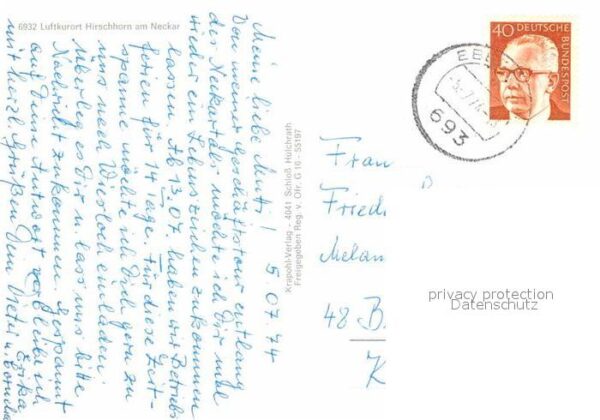 6932 Luftkurort Hirschhorn am Neckar
5.07.74
Meine liebe Mutti!
Von meiner Geschäftstour entlang
des Neckartals möchte ich Dir mal
wieder ein Lebenszeichen zukommen
lassen. Ab 13.07. haben wir Betriebs-
ferien für 14 Tage. Für diese Zeit-
spanne möchte ich Dich gern zu
uns nach Wiesloch einladen.
Überleg es Dir u. lass uns bitte
Nachricht zukommen. Gespannt
auf Deine Antwort verbleibe ich
mit herzl. Grüßen Dein Dieter u. Erika
Krapohl-Verlag - 4041 Schloß Hülchrath
Freigegeben Reg. v. Ofr. G 16 - 55197
40 DEUTSCHE
BUNDESPOST
693
Frau
Fried
Melan
48 B
K
privacy protection
Datenschutz